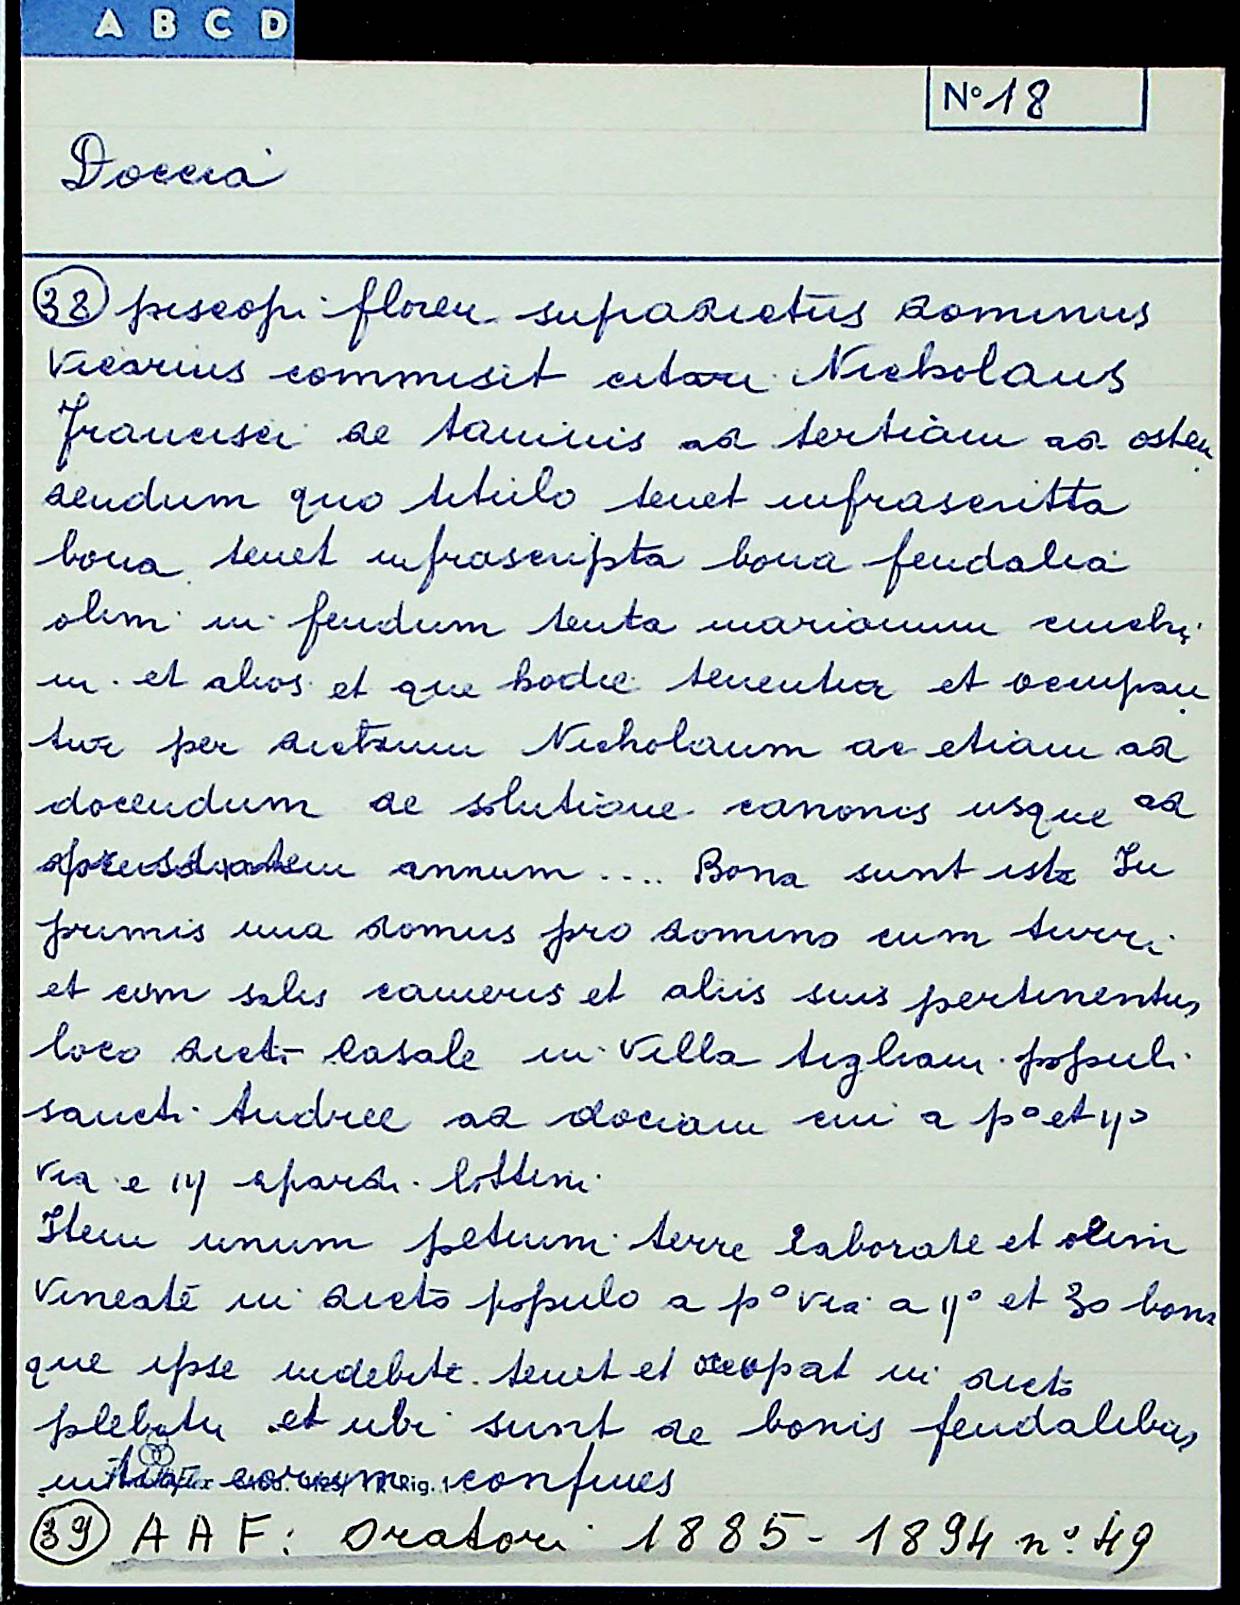 A B C D
N° 18
Doccia
38 piscopi floren. supradictus dominus
Vicarius commisit citari Nicholaus
Francisci de taninis ad tertiam ad osten
dendum quo titulo tenet infrascritta
bona tenet infrascripta bona feudalia
olim in feudum tenta
in et alios et que hodie tenentur et occupan
tur per dictum Nicholaum ac etiam ad
docendum de solutione canonis usque ad
annum .... Bona sunt ista In
primis una domus pro domino cum turri
et cum salis cameris et aliis suis pertinentiis
loco dicti Casale in Villa tigliani populi
sancti Andree ad dociam cui a p° et 4°
via e
Item unum petium terre laborate et olim
vineate in dicto populo a p° via a 4° et 30 bona
que ipse indebite tenet et occupat in dicto
plebatu et ubi sunt de bonis feudalibus
intra eorum confines
39 A A F: Oratori 1885 - 1894 n° 49